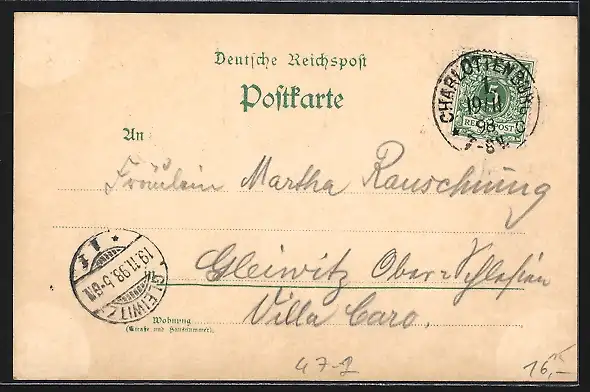 Deutsche Reichspost
Postkarte
CHARLOTTENBURG
5
REICHSPOST
98
7-8V.
An
Fräulein Martha Rauschning
Gleiwitz Ober-Schlesien
Villa Caro,
GLEIWITZ
19.11.98.5-6N.
Wohnung
(Straße und Hausnummer).
47-2
16,-